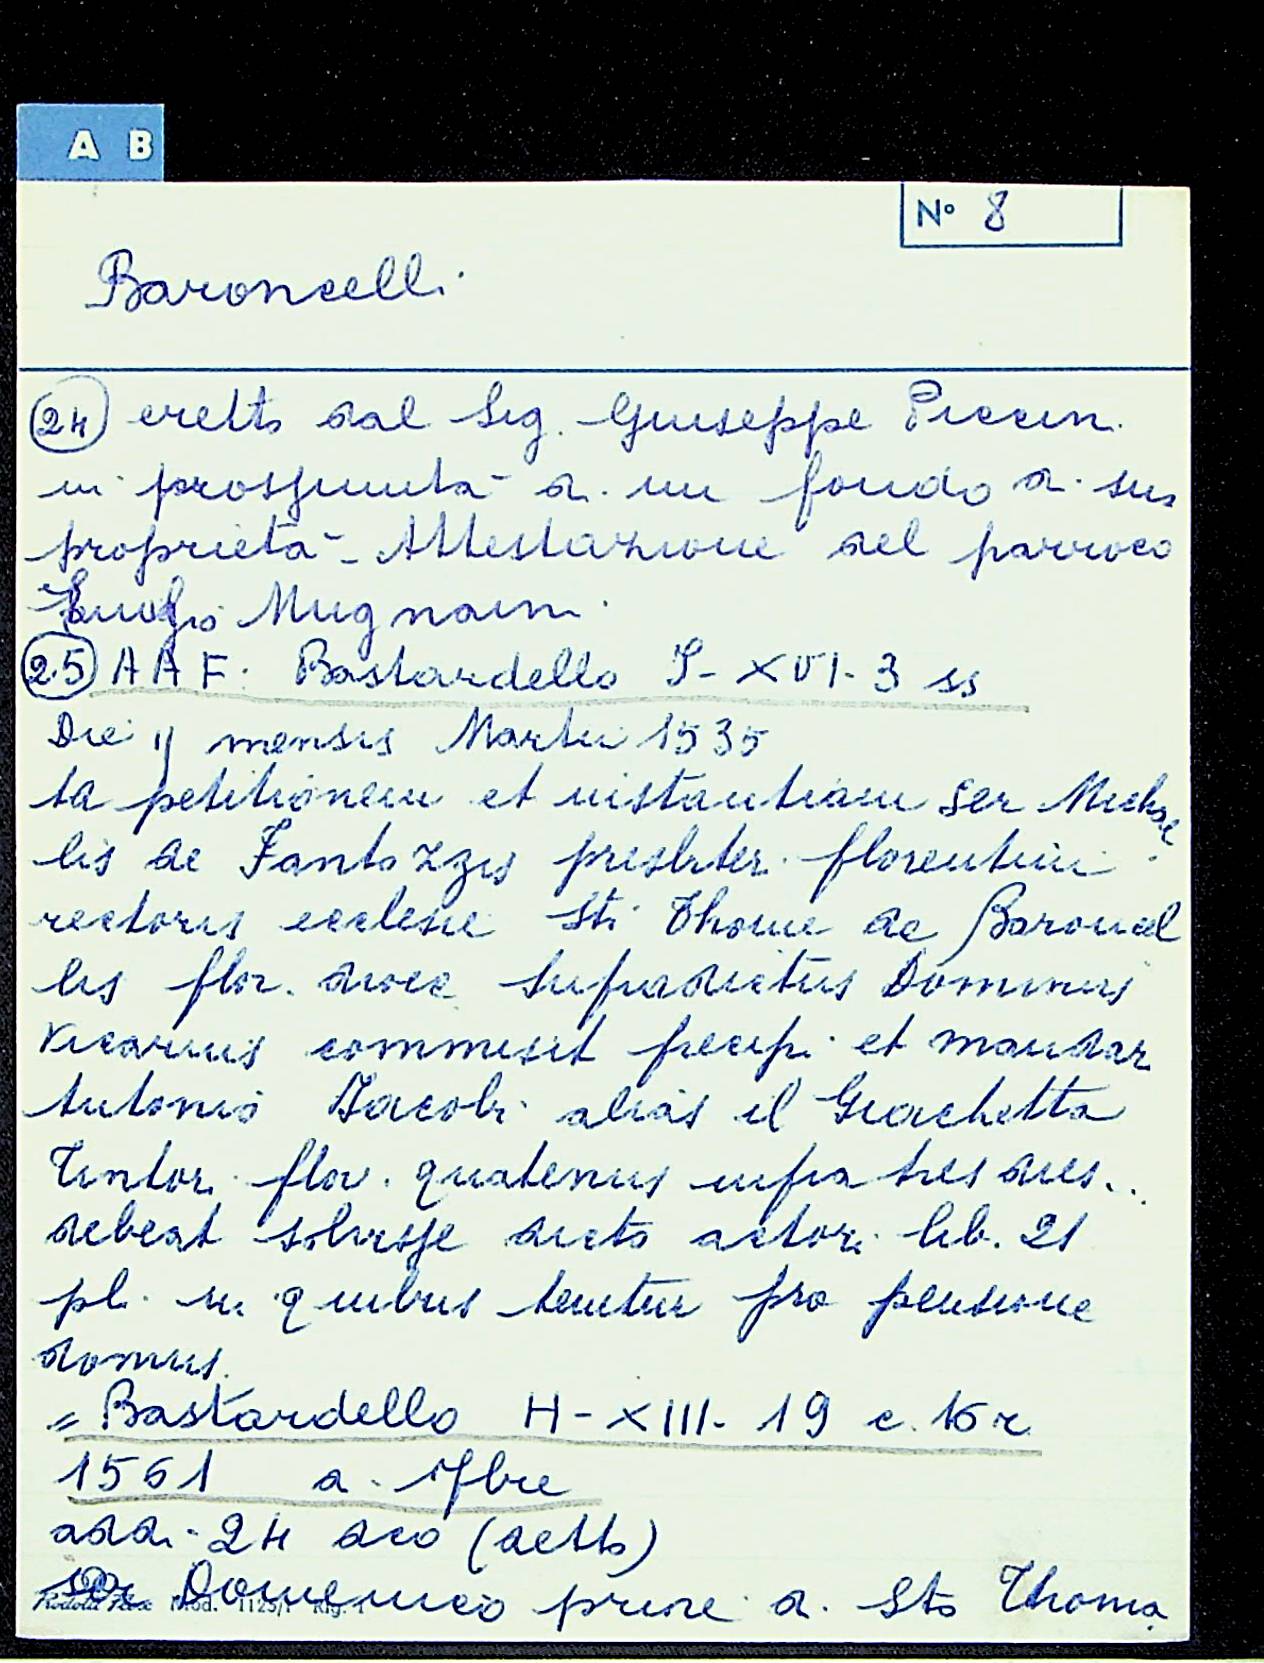 A B
N° 8
Baroncelli
24 eretto dal Sig. Giuseppe Piccini
in prossimità di un fondo di sua
proprietà - Attestazione del parroco
Eugenio Mugnaini
25 AAF: Bastardello I - XVI - 3 ss
Die ij mensis Martii 1535
ta petitionem et instantiam ser Michae
lis de Fantozzis presbiter florentini
rectoris ecclesie Sti Thome de Baroncel
lis flor. dioec supradictus Dominus
Vicarius commisit precipi et mandar
Antonio Jacobi alias il Giachetta
Tintor flor. quatenus infra tres dies..
debeat solvisse dicto actori lib. 21
pl. in quibus tenetur pro pensione
domus.
= Bastardello H - XIII - 19 c. 16 r
1561 a. 7bre
addi 24 dco (detto)
ser Domenico priore di Sto Thoma